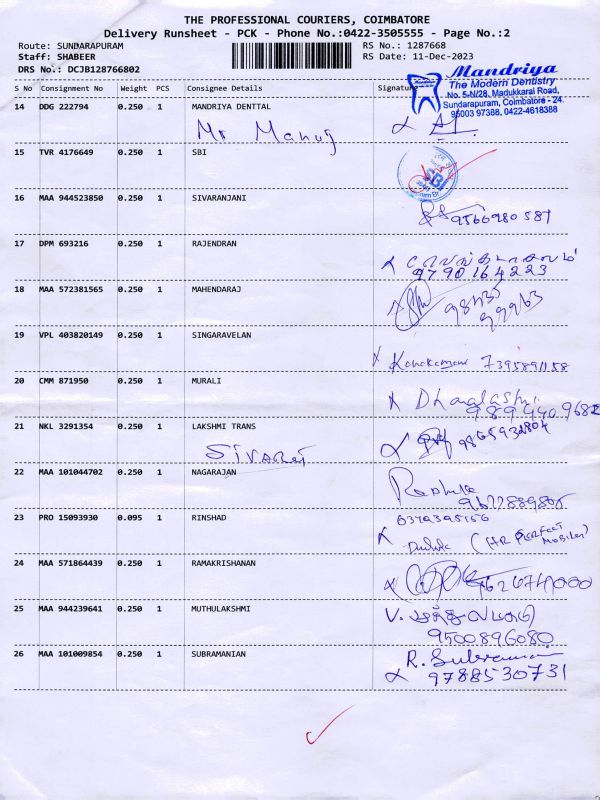 THE PROFESSIONAL COURIERS, COIMBATORE
Delivery Runsheet - PCK - Phone No.:0422-3505555 - Page No.:2
Route: SUNDARAPURAM
Staff: SHABEER
DRS No.: DCJB128766802
RS No.: 1287668
RS Date: 11-Dec-2023
Mandriya
The Modern Dentistry
No. 5-N/28, Madukkarai Road,
Sundarapuram, Coimbatore - 24.
95003 97388, 0422-4618388
S No Consignment No Weight PCS Consignee Details Signature
14 DDG 222794 0.250 1 MANDRIYA DENTTAL
Mr Manuj
15 TVR 4176649 0.250 1 SBI
SBI
16 MAA 944523850 0.250 1 SIVARANJANI
9566980587
17 DPM 693216 0.250 1 RAJENDRAN
9790164223
18 MAA 572381565 0.250 1 MAHENDARAJ
98435
99963
19 VPL 403820149 0.250 1 SINGARAVELAN
7395891158
20 CMM 871950 0.250 1 MURALI
9894409682
21 NKL 3291354 0.250 1 LAKSHMI TRANS
9865932804
22 MAA 101044702 0.250 1 NAGARAJAN
23 PRO 15093930 0.095 1 RINSHAD
(HR PERFECT
Mobiles)
24 MAA 571864439 0.250 1 RAMAKRISHANAN
25 MAA 944239641 0.250 1 MUTHULAKSHMI
V.
9500896080
26 MAA 101009854 0.250 1 SUBRAMANIAN
R. Subraman
9788530731